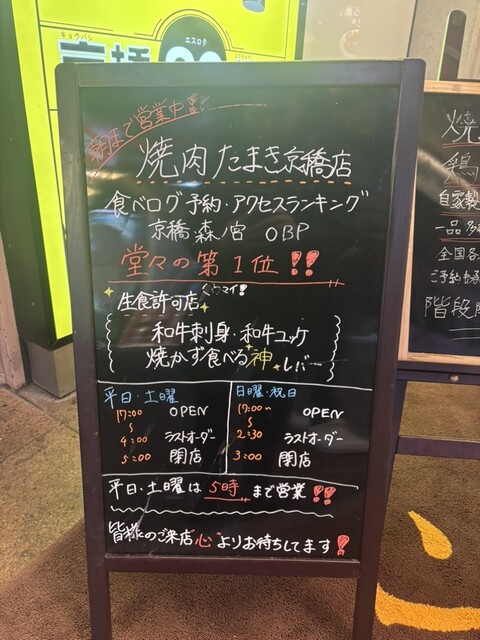 キョウバシ
エスロク
京橋
朝まで営業中!!
焼肉たまき京橋店
食べログ予約・アクセスランキング
京橋・森ノ宮 OBP
堂々の第1位!!
生食許可店 くウマイ!
和牛刺身・和牛ユッケ
焼かず食べる神レバー
平日・土曜
17:00 OPEN
〜
4:00 ラストオーダー
5:00 閉店
日曜・祝日
17:00〜 OPEN
〜
2:30 ラストオーダー
3:00 閉店
平日・土曜は5時まで営業!!
皆様のご来店"心"よりお待ちしてます!
焼
鶏
自家製
一品
全国各
ご予約も承
階段